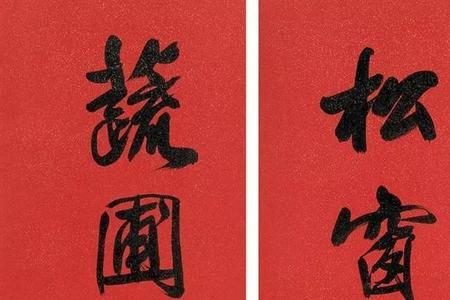 松窗
蔬圃